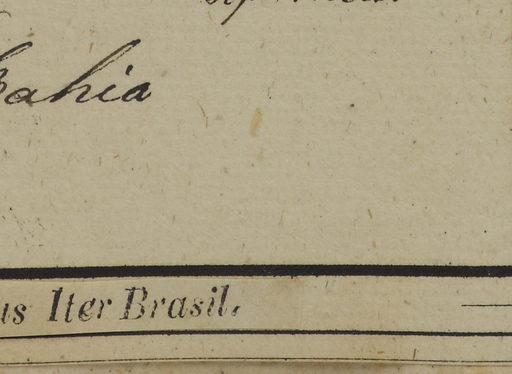 Bahia
us Iter Brasil.